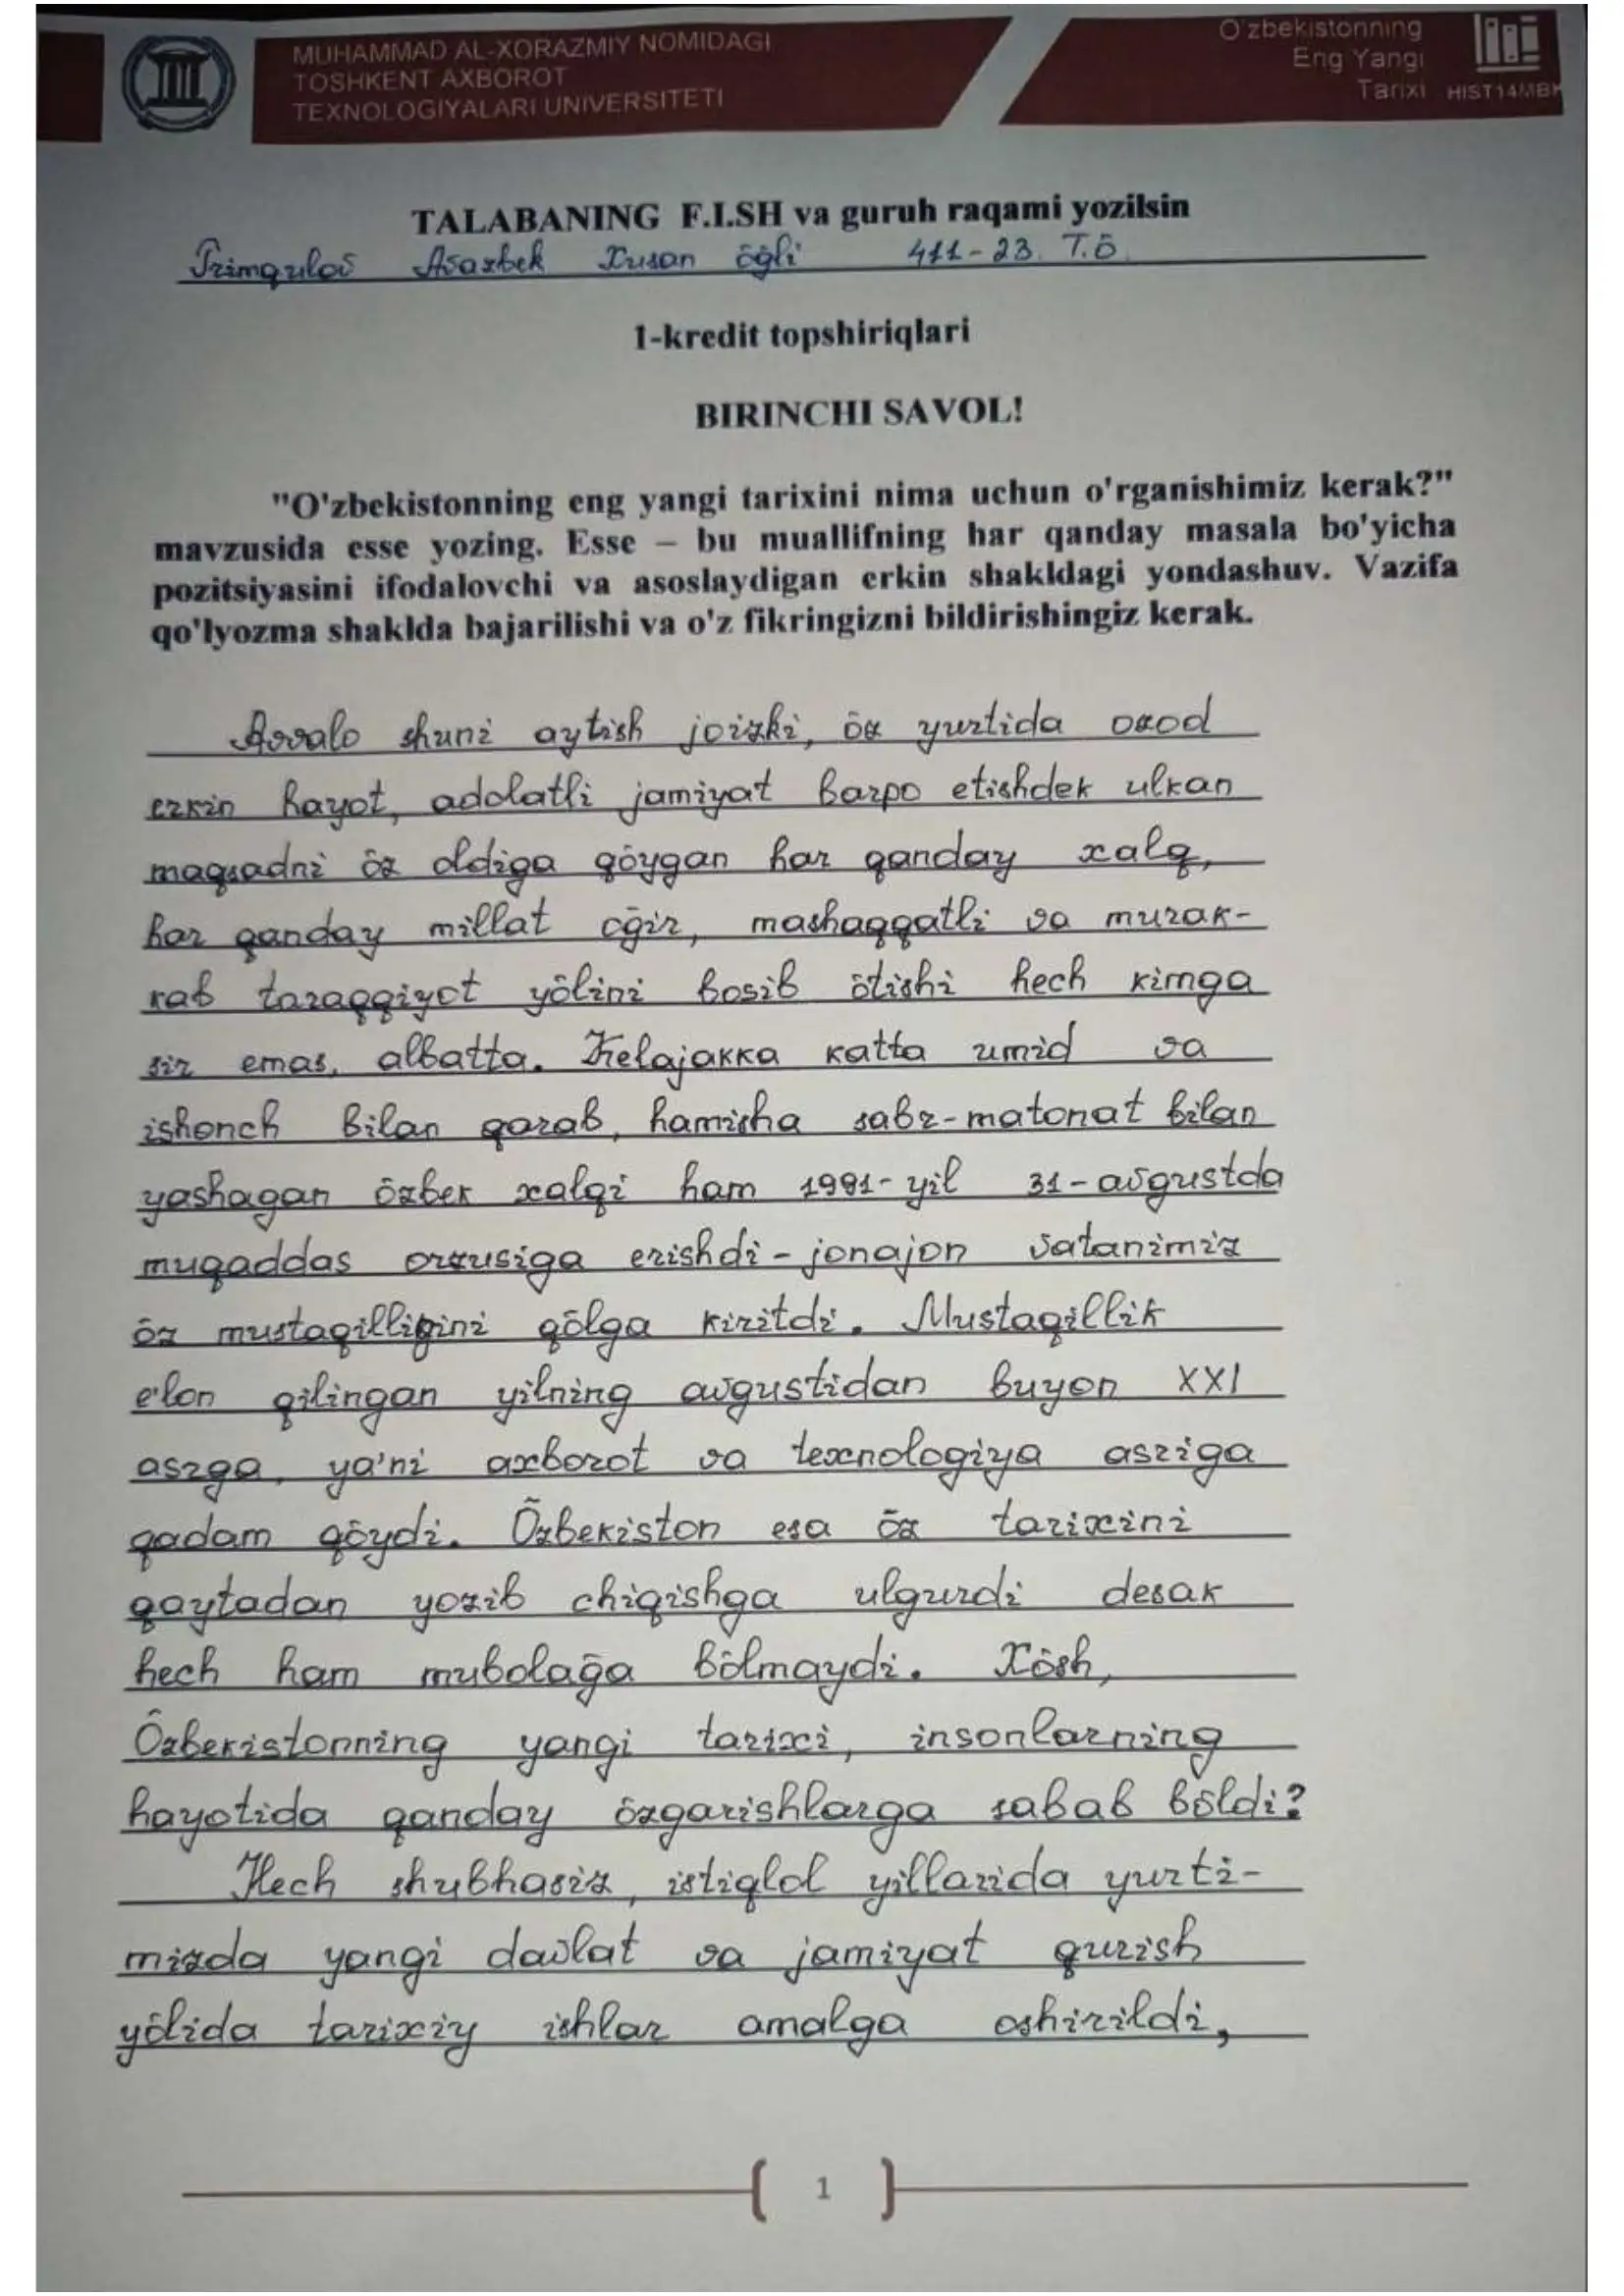 MUHAMMAD AL-XORAZMIY NOMIDAGI
TOSHKENT AXBOROT
TEXNOLOGIYALARI UNIVERSITETI
O'zbekistonning
Eng Yangi
Tarixi HIST14MBK
TALABANING F.I.SH va guruh raqami yozilsin
Avazbek Xusan ōğli 411-23. T.Ō.
1-kredit topshiriqlari
BIRINCHI SAVOL!
"O'zbekistonning eng yangi tarixini nima uchun o'rganishimiz kerak?"
mavzusida esse yozing. Esse – bu muallifning har qanday masala bo'yicha
pozitsiyasini ifodalovchi va asoslaydigan erkin shakldagi yondashuv. Vazifa
qo'lyozma shaklda bajarilishi va o'z fikringizni bildirishingiz kerak.
Avvalo shuni aytish joizki, ōz yurtida ozod
erkin hayot, adolatli jamiyat barpo etishdek ulkan
maqsadni ōz oldiga qōygan har qanday xalq,
har qanday millat oğir, mashaqqatli va murak-
kab taraqqiyot yōlini bosib ōtishi hech kimga
sir emas, albatta. Kelajakka katta umid va
ishonch bilan qarab, hamisha sabr-matonat bilan
yashagan ōzbek xalqi ham 1991-yil 31-avgustda
muqaddas orzusiga erishdi - jonajon vatanimiz
ōz mustaqilligini qōlga kiritdi. Mustaqillik
e'lon qilingan yilning avgustidan buyon XXI
asrga, ya'ni axborot va texnologiya asriga
qadam qōydi. Ōzbekiston esa ōz tarixini
qaytadan yozib chiqishga ulgurdi desak
hech ham mubolağa bōlmaydi. Xōsh,
Ōzbekistonning yangi tarixi, insonlarning
hayotida qanday ōzgarishlarga sabab bōldi?
Hech shubhasiz, istiqlol yillarida yurti-
mizda yangi davlat va jamiyat qurish
yōlida tarixiy ishlar amalga oshirildi,
1